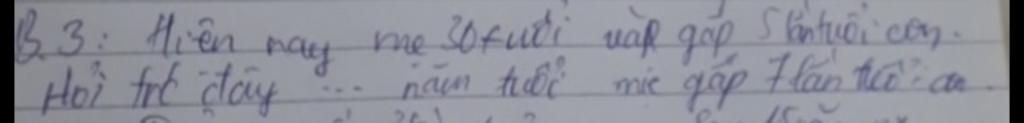 B3: Hiện nay mẹ 30 tuổi và gấp 5 lần tuổi con.
Hỏi trc đây ... năm tuổi mẹ gấp 7 lần tuổi con.